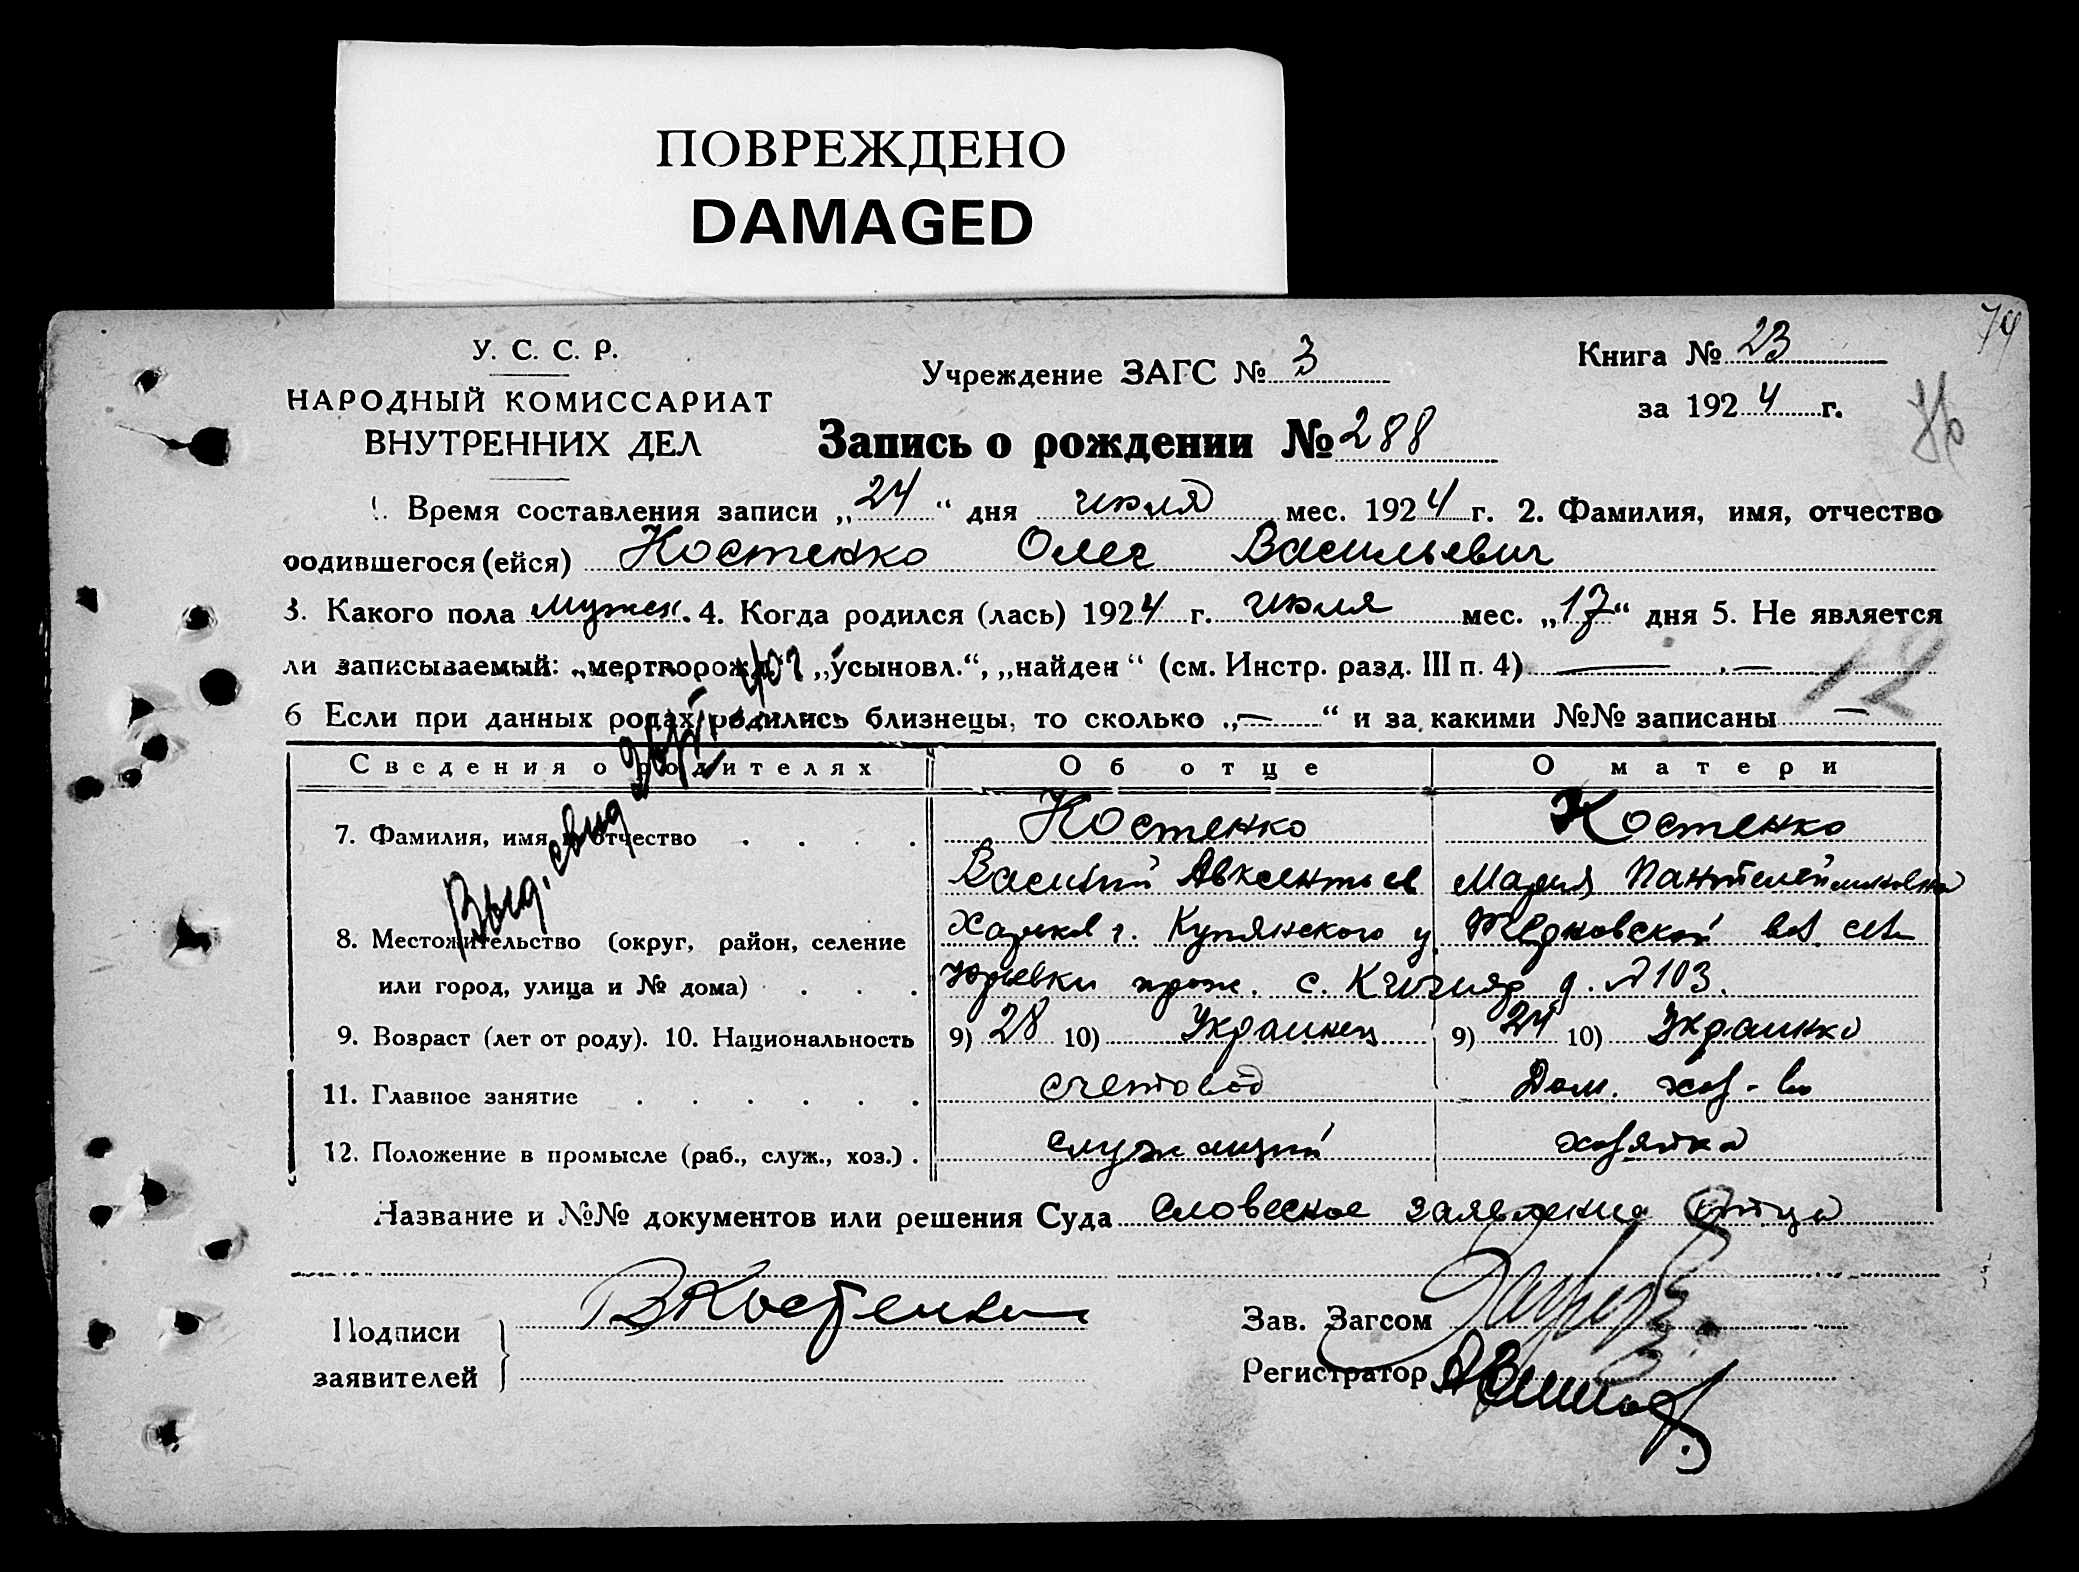 ПОВРЕЖДЕНО
DAMAGED
74
У. С. С. Р.
НАРОДНЫЙ КОМИССАРИАТ
ВНУТРЕННИХ ДЕЛ
Учреждение ЗАГС № 3
Книга № 23
за 1924 г.
Запись о рождении № 288
1. Время составления записи „24“ дня июля мес. 1924 г. 2. Фамилия, имя, отчество
родившегося (ейся) Костенко Олег Васильевич
3. Какого пола мужск. 4. Когда родился (лась) 1924 г. июля мес. „17“ дня 5. Не является
ли записываемый: „мертворожд.“, „усыновл.“, „найден“ (см. Инстр. разд. III п. 4) —
12
6 Если при данных родах родились близнецы, то сколько „—“ и за какими №№ записаны —
Сведения о родителях Об отце О матери
7. Фамилия, имя и отчество . . . . Костенко Костенко
Василий Авксентьев Мария Пантелеймоновна
Выд. свид
8. Местожительство (округ, район, селение Харьков г. Купянского у. вол. сел
или город, улица и № дома) . . . Юрьевки прож. с. д. № 103.
9. Возраст (лет от роду). 10. Национальность 9) 28 10) Украинец 9) 24 10) Украинка
11. Главное занятие . . . . . . счетовод Дом. хоз-во
12. Положение в промысле (раб., служ., хоз.) . служащий хозяйка
Название и №№ документов или решения Суда словесное заявление отца
Подписи
заявителей
ВКостенко
Зав. Загсом
Регистратор